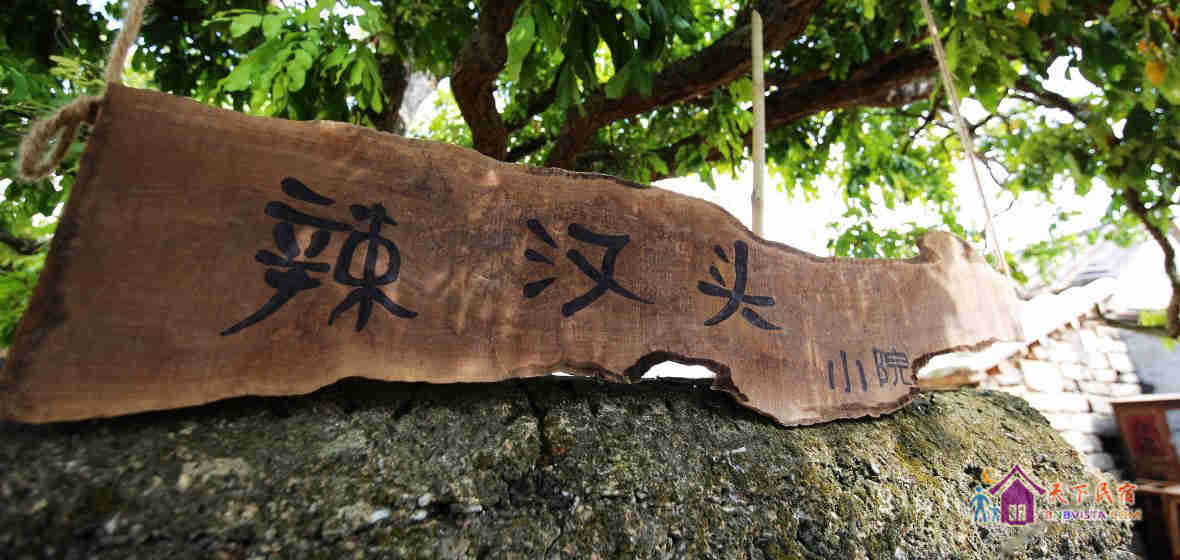 辣汉头
小院
天下民宿
BNBVISTA.COM